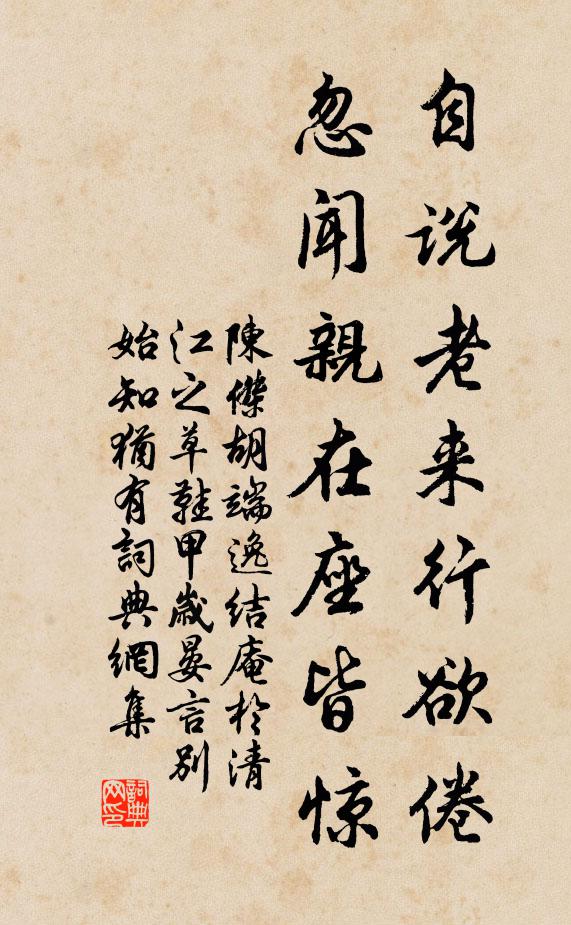 自说老来行欲倦
忽闻親在座皆惊
陳傑胡端逸结庵於清
江之草鞋甲歲晏言别
始知猶有詞典網集
詞典网印